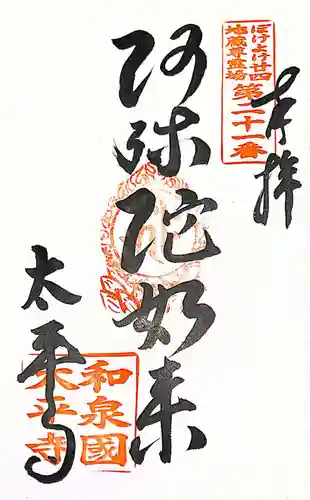 奉拝
ぼけよけ廿四
地蔵尊霊場
第二十一番
阿弥陀如来
和泉國
太平寺
太平寺